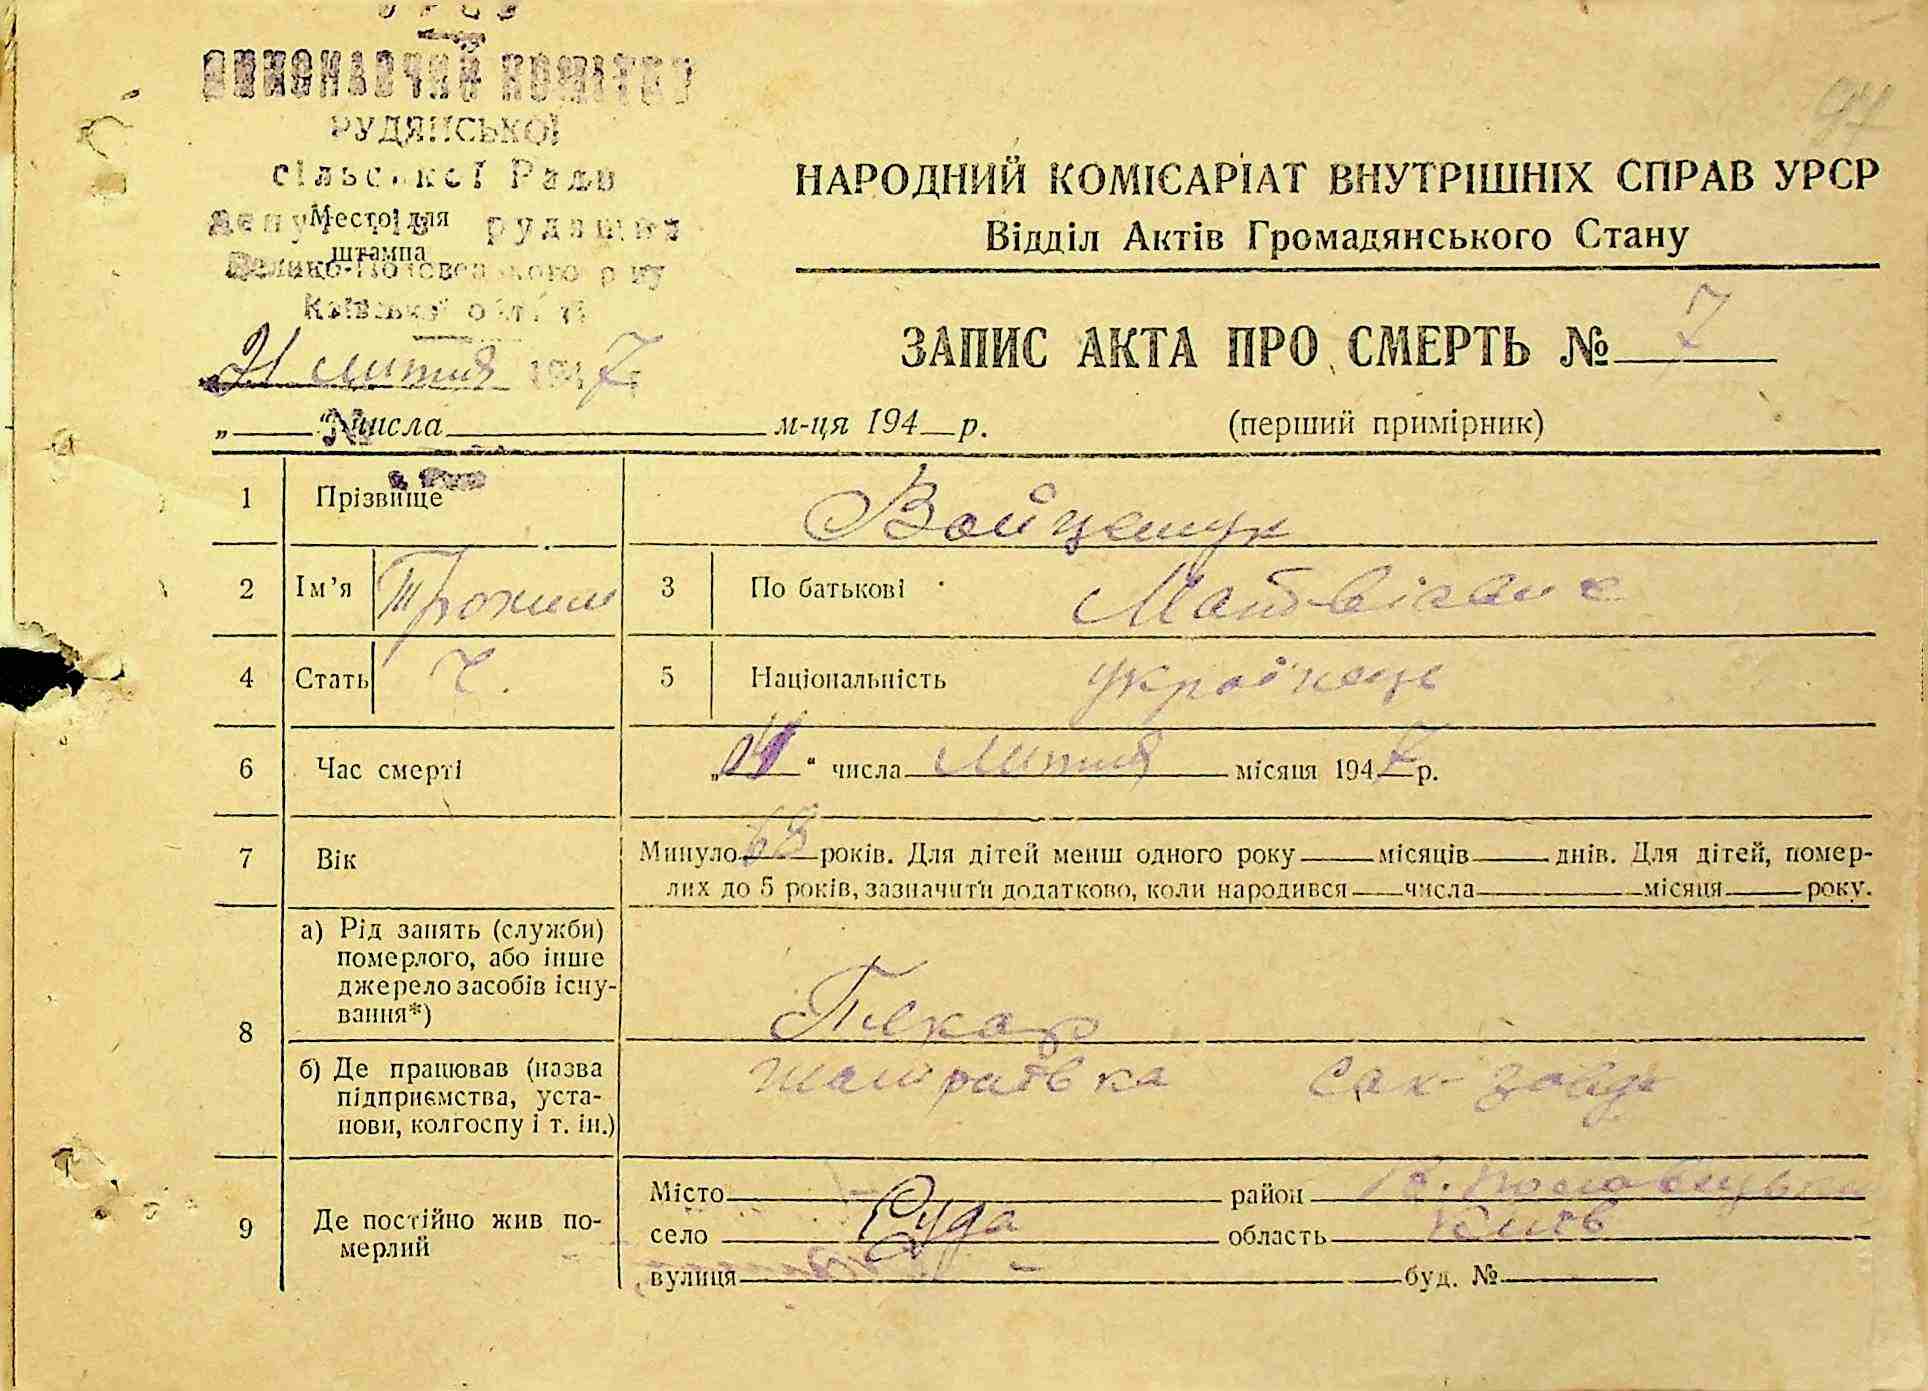 УРСР
ВИКОНАВЧИЙ КОМІТЕТ
РУДЯНСЬКОЇ
сільської Ради
депутатів трудящих
Велико-Половецького р-ну
Київської області
Место для
штампа
21 лютня 1947
№
97
НАРОДНИЙ КОМІСАРІАТ ВНУТРІШНІХ СПРАВ УРСР
Відділ Актів Громадянського Стану
ЗАПИС АКТА ПРО СМЕРТЬ № 7
„ “ числа м-ця 194 р. (перший примірник)
1 Прізвище Войцешук
2 Ім'я Трохим 3 По батькові Матвієвич
4 Стать Ч. 5 Національність українець
6 Час смерті „ “ числа лютня місяця 1947 р.
7 Вік Минуло 68 років. Для дітей менш одного року місяців днів. Для дітей, помер-
лих до 5 років, зазначити додатково, коли народився числа місяця року.
8 а) Рід занять (служби)
померлого, або інше
джерело засобів існу-
вання*) Пекар
б) Де працював (назва
підприємства, уста-
нови, колгоспу і т. ін.) Шамраївка Сах-завод
9 Де постійно жив по-
мерлий
Місто район В. Половецький
село Руда область Київ
вулиця — буд. №